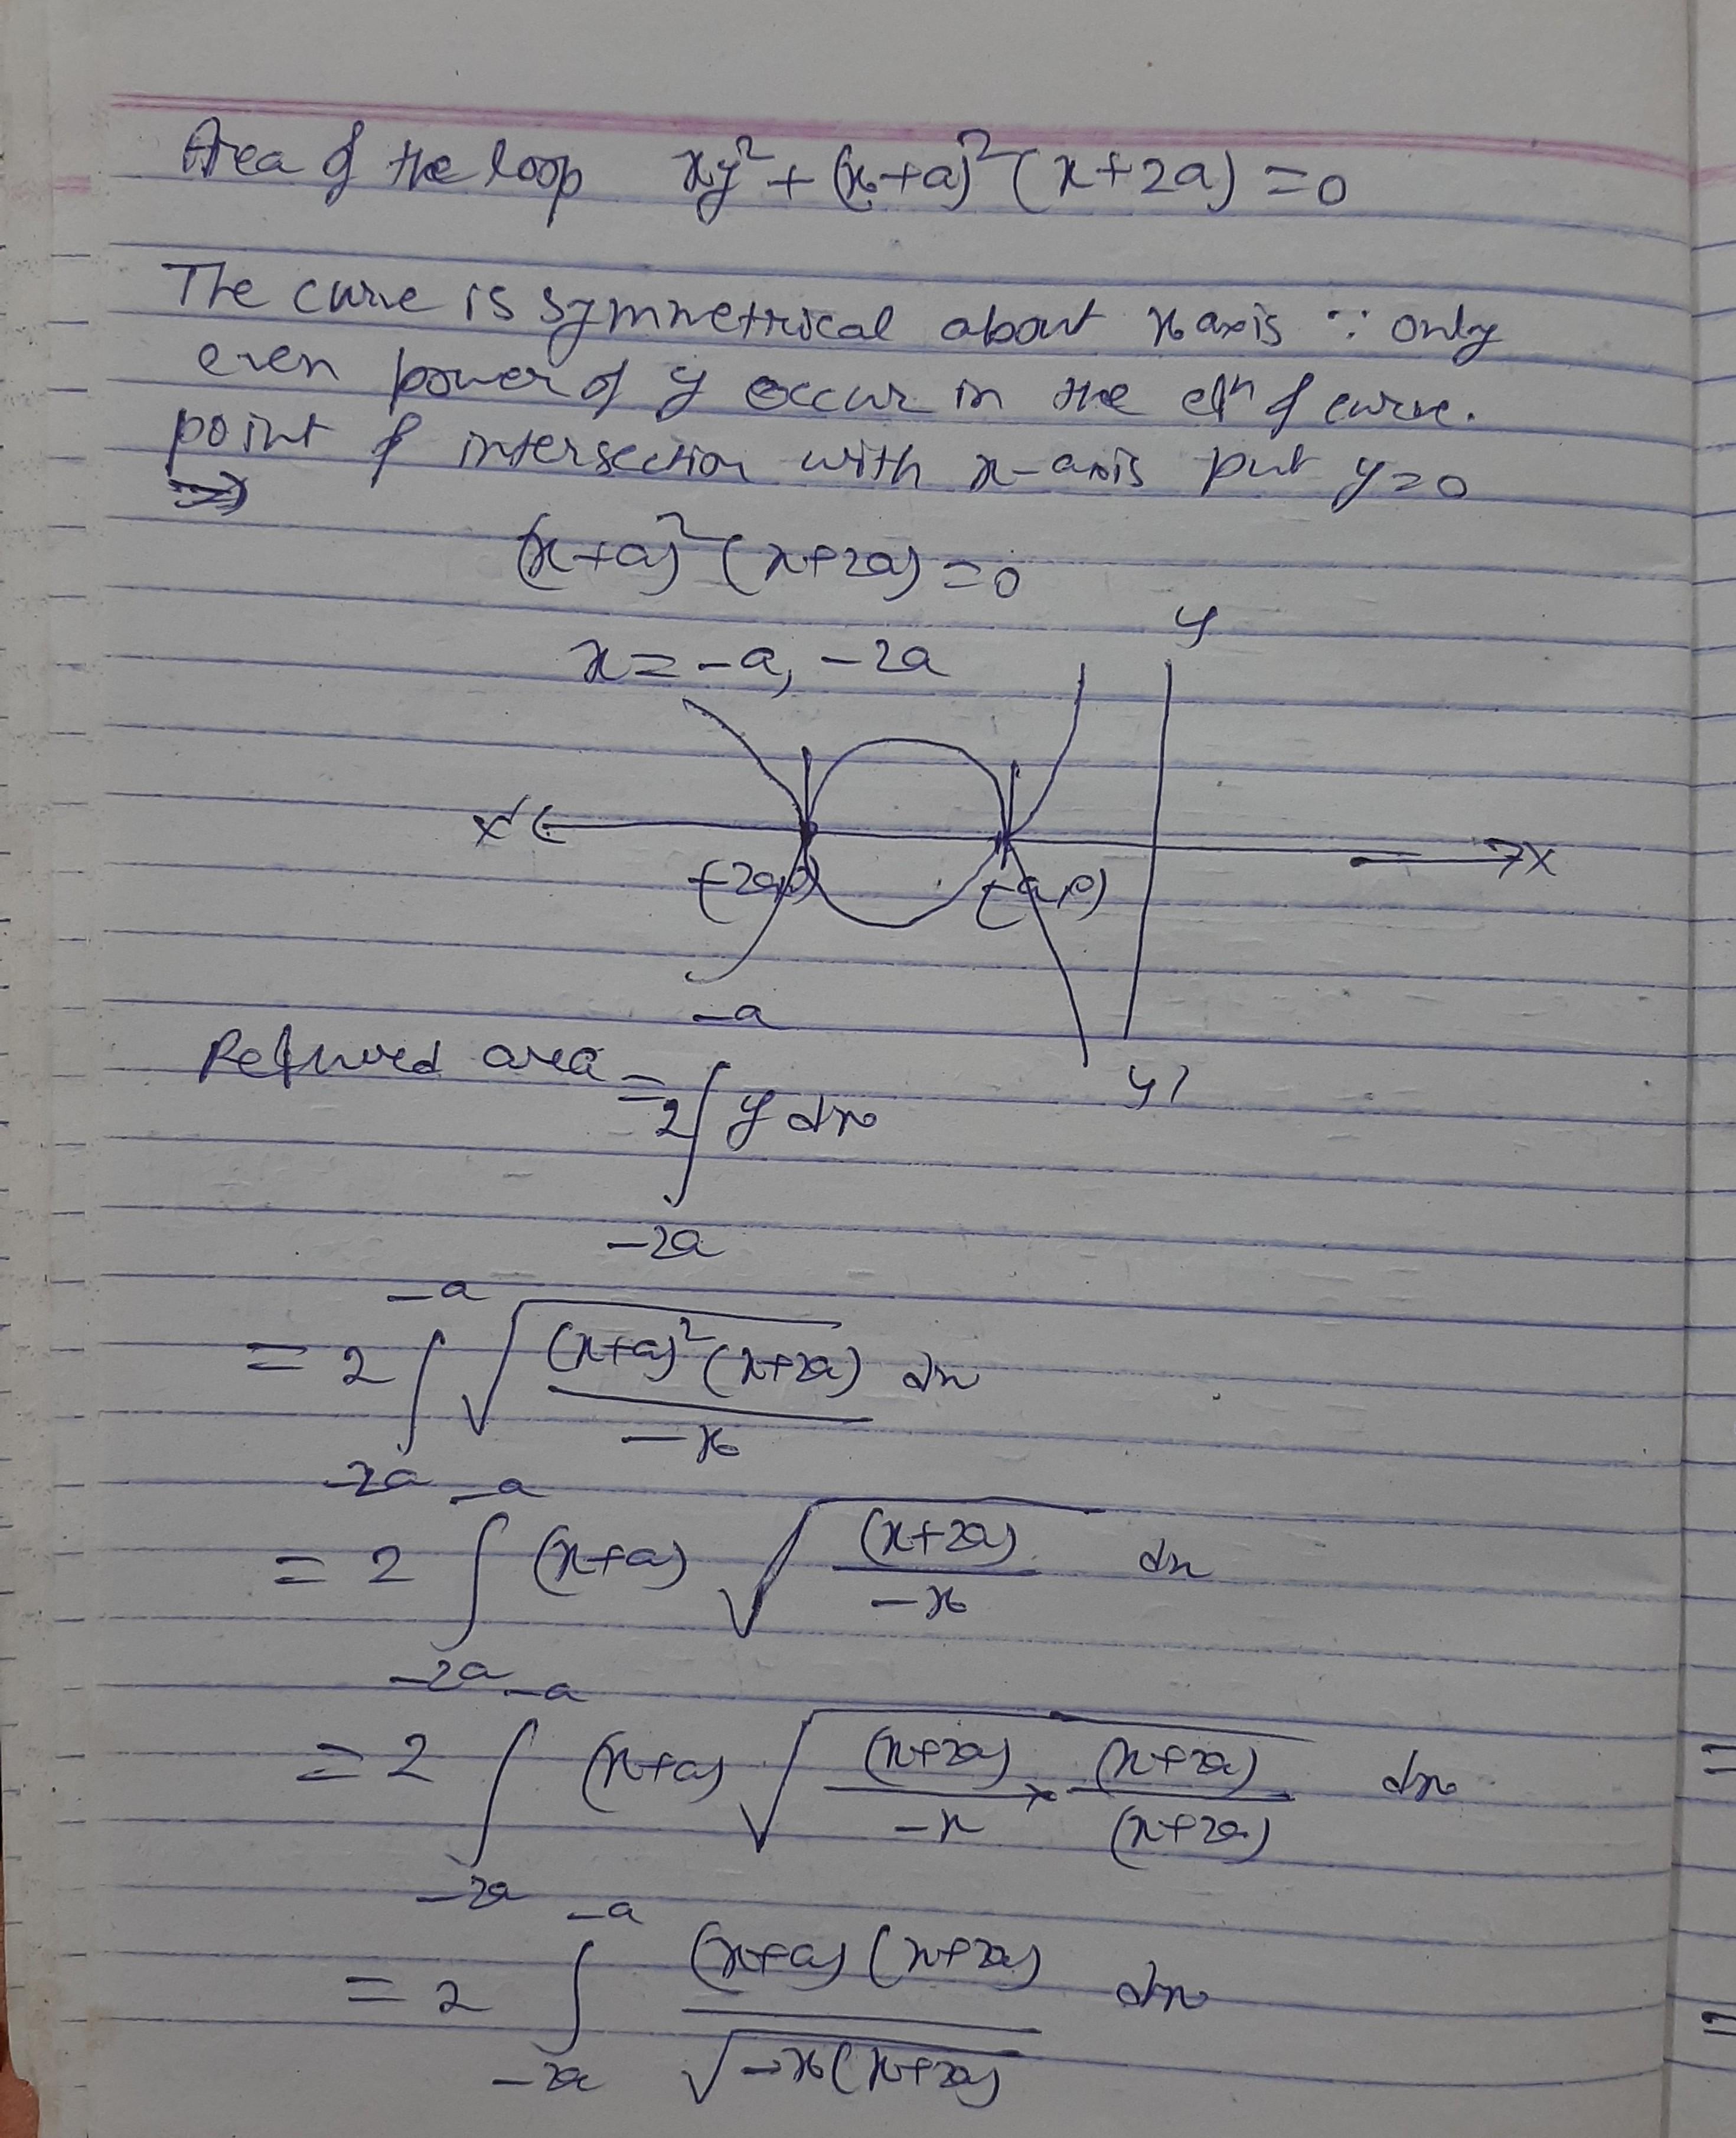 Area of the loop xy² + (x+a)² (x+2a) = 0
The curve is symmetrical about x axis ∵ only
even power of y occur in the eqn of curve.
point of intersection with x-axis put y=0
⇒
(x+a)² (x+2a) = 0
x = -a, -2a
y
x' x
(-2a,0) (-a,0)
y'
Required area = 2 ∫_{-2a}^{-a} y dx
= 2 ∫_{-2a}^{-a} √((x+a)² (x+2a) / -x) dx
= 2 ∫_{-2a}^{-a} (x+a) √((x+2a) / -x) dx
= 2 ∫_{-2a}^{-a} (x+a) √((x+2a) / -x × (x+2a) / (x+2a)) dx
= 2 ∫_{-2a}^{-a} (x+a) (x+2a) / √(-x(x+2a)) dx
=
=